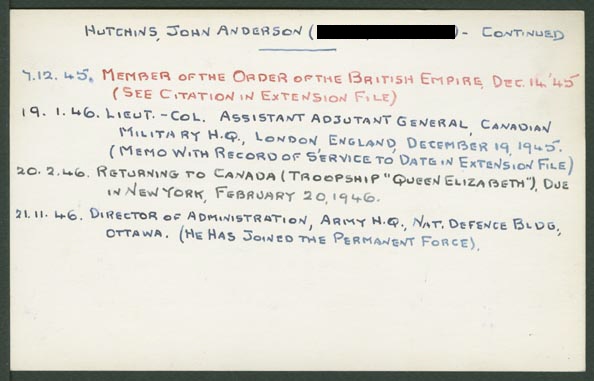 HUTCHINS, JOHN ANDERSON ( ) - CONTINUED
7.12.45. MEMBER OF THE ORDER OF THE BRITISH EMPIRE, DEC. 14, '45
(SEE CITATION IN EXTENSION FILE)
19.1.46. LIEUT.-COL. ASSISTANT ADJUTANT GENERAL, CANADIAN
MILITARY H.Q., LONDON, ENGLAND, DECEMBER 19, 1945.
(MEMO WITH RECORD OF SERVICE TO DATE IN EXTENSION FILE)
20.2.46. RETURNING TO CANADA (TROOPSHIP "QUEEN ELIZABETH"), DUE
IN NEW YORK, FEBRUARY 20, 1946.
21.11.46. DIRECTOR OF ADMINISTRATION, ARMY H.Q., NAT. DEFENCE BLDG,
OTTAWA. (HE HAS JOINED THE PERMANENT FORCE).